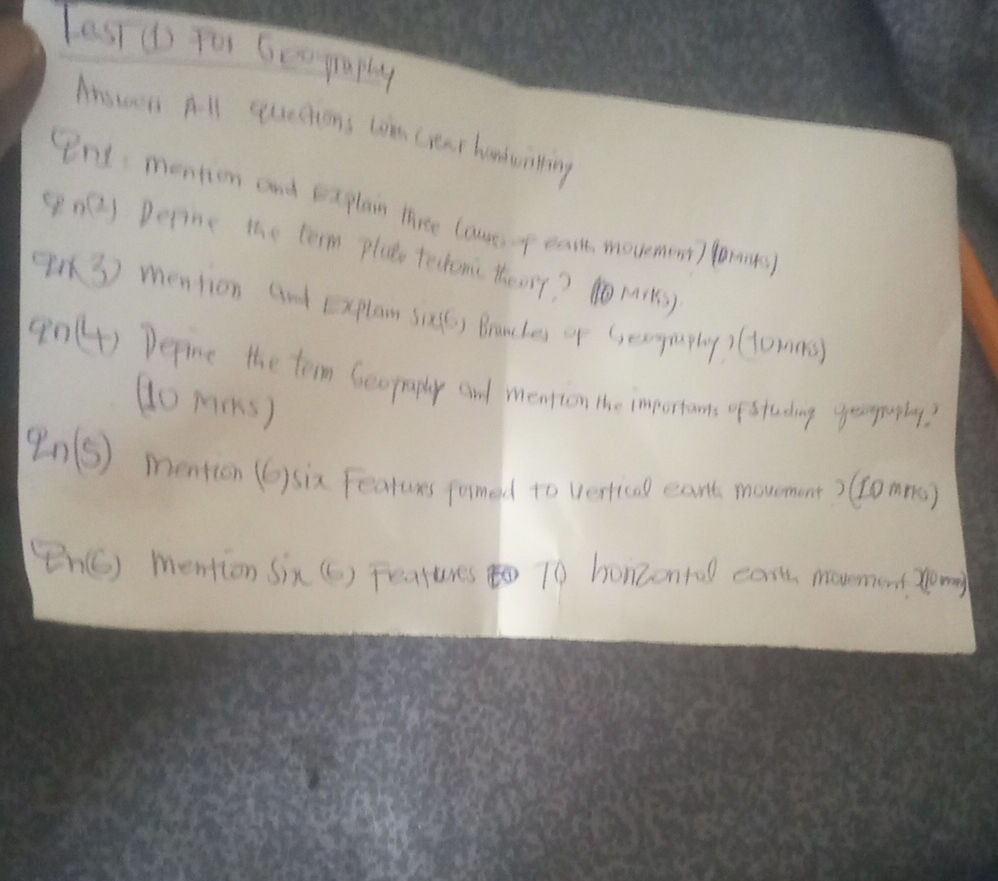 Tast (1) For Geography
Answers All questions with clear handwritting
Qn1. mention and Explain three causes of earth movement? (10mrks)
Qn(2) Define the term plate tectonic theory? (10 mrks).
Qn(3) mention and Explain six(6) Branches of Geography? (10mrks)
Qn(4) Define the term Geography and mention the importants of studing geography?
(10 mrks)
Qn(5) mention (6) six Features formed to vertical earth movement? (10 mrks)
Qn(6) mention Six (6) Features To horizontal earth movement? (10 mrk)